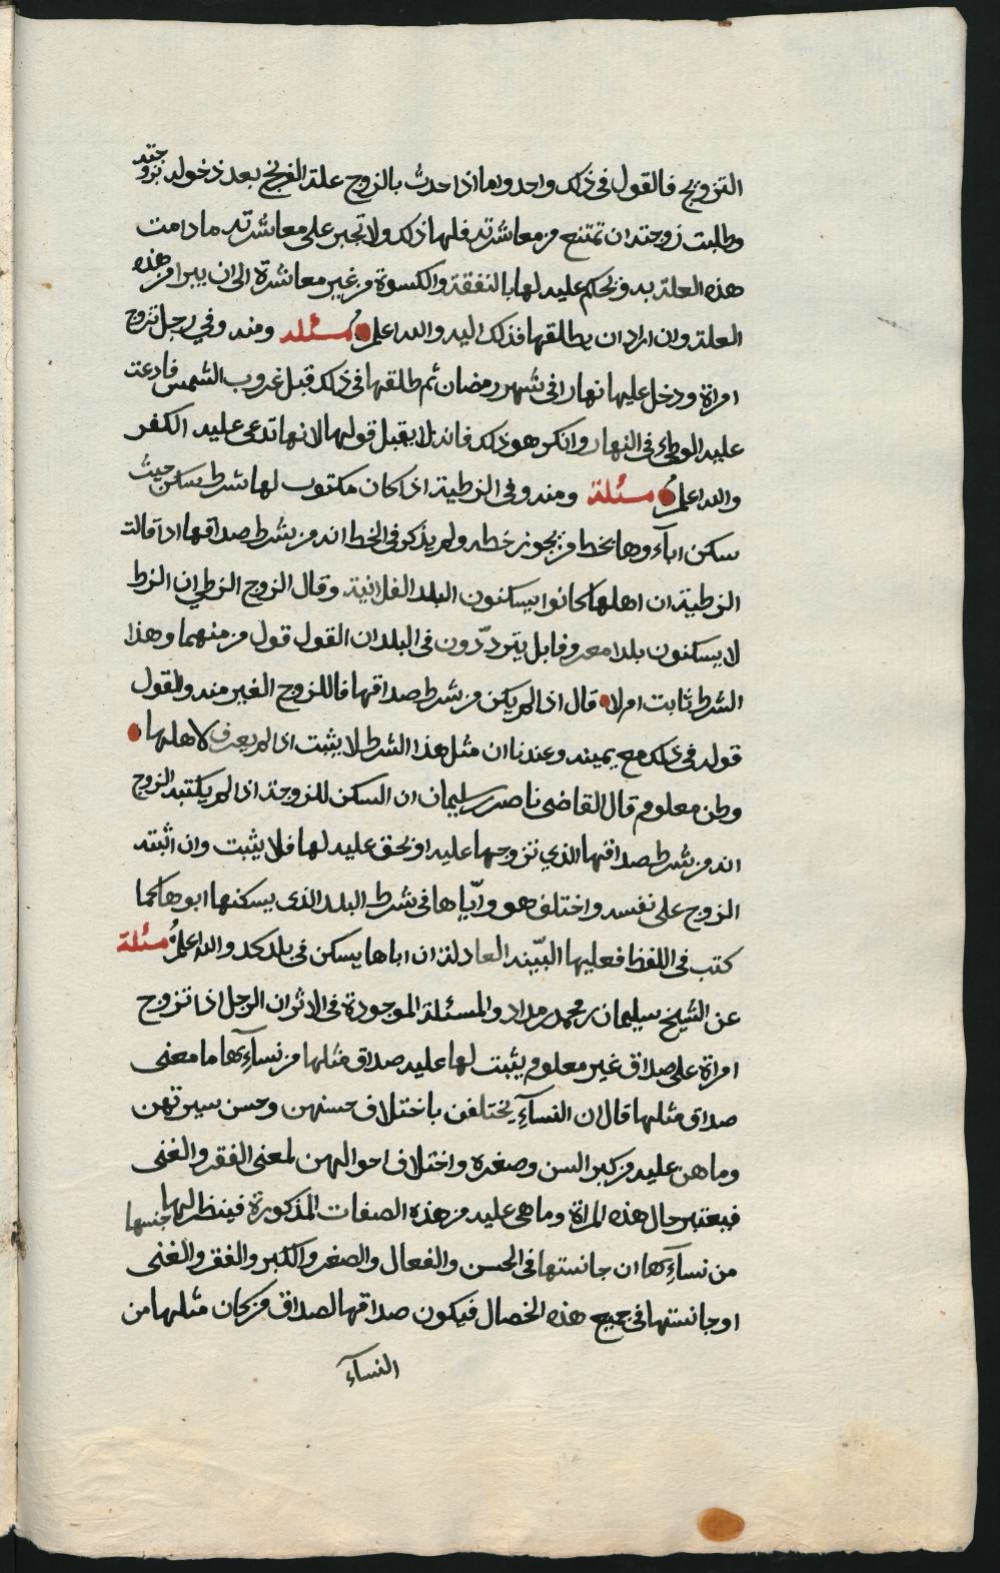 التزويج فالقول في ذلك واحد واما اذا حدث بالزوج علة الفرنج بعد دخوله بزوجته
وطلبت زوجته ان تمتنع من معاشرته فلها ذلك ولا تجبر على معاشرته ما دامت
هذه العلة به ونحكم عليه لها بالنفقة والكسوة من غير معاشرة الى ان يبرا من هذه
العلة وان اراد ان يطلقها فذلك اليه والله اعلم مسئلة ومنه وفي رجل تزوج
امراة ودخل عليها نهارا في شهر رمضان ثم طلقها في ذلك قبل غروب الشمس فادعت
عليه الوطء في النهار وانكر هو ذلك فانه لا يقبل قولها لانها تدعي عليه الكفر
والله اعلم مسئلة ومنه وفي الزطية اذا كان مكتوب لها شرط سكن حيث
سكن اباؤها بخط من يجوز خطه ولم يذكر في الخط انه من شرط صداقها اذا قالت
الزطية ان اهلها كانوا يسكنون البلد الفلانية وقال الزوج الزطي ان الزط
لا يسكنون بلدا معروفا بل يترددون في البلدان القول قول من منهما وهذا
الشرط ثابت ام لا قال اذا لم يكن من شرط صداقها فاللزوج الغير منه والقول
قوله في ذلك مع يمينه وعندنا ان مثل هذا الشرط لا يثبت اذا لم يعرف لاهلها
وطن معلوم قال القاضي ناصر بن سليمان ان السكن للزوجة اذا لم يكتبه الزوج
انه من شرط صداقها الذي تزوجها عليه او بحق عليه لها فلا يثبت وان اثبته
الزوج على نفسه واختلف هو واياها في شرط البلد الذي يسكنها ابوها كما
كتب في اللفظ فعليها البينة العادلة ان اباها يسكن في بلد كذ والله اعلم مسئلة
عن الشيخ سليمان بن محمد بن مداد والمسئلة الموجودة في الاثر ان الرجل اذا تزوج
امراة على صداق غير معلوم يثبت لها عليه صداق مثلها من نسآئها ما معنى
صداق مثلها قال ان النسآء يختلفن باختلاف حسنهن وحسن سيرتهن
وما هن عليه من كبر السن وصغره واختلاف احوالهن لمعنى الفقر والغنى
فيعتبر حال هذه المراة وما هي عليه من هذه الصفات المذكورة فينظر الى جنسها
من نسآئها ان جانستها في الحسن والفعال والصغر والكبر والفقر والغنى
او جانستها في جميع هذه الخصال فيكون صداقها لصداق من كان مثلها من
النسآء